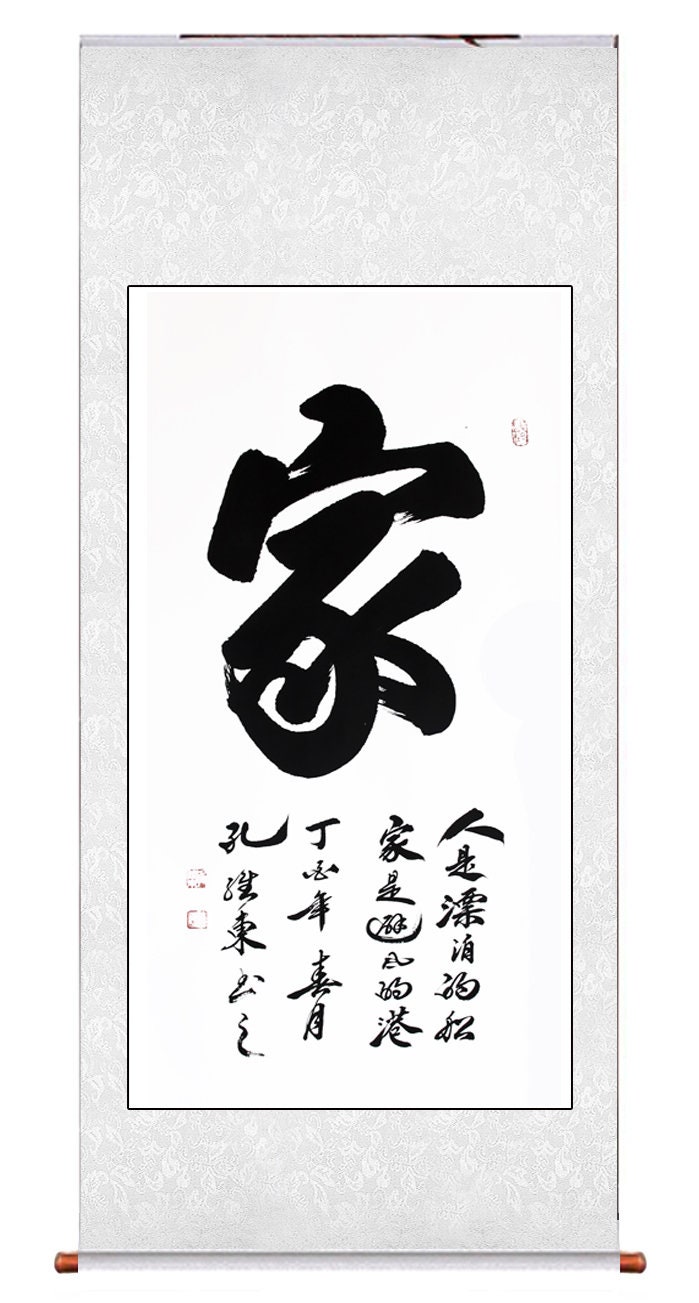 家
人是漂泊的船
家是避风的港
丁酉年春月
孔维东书之